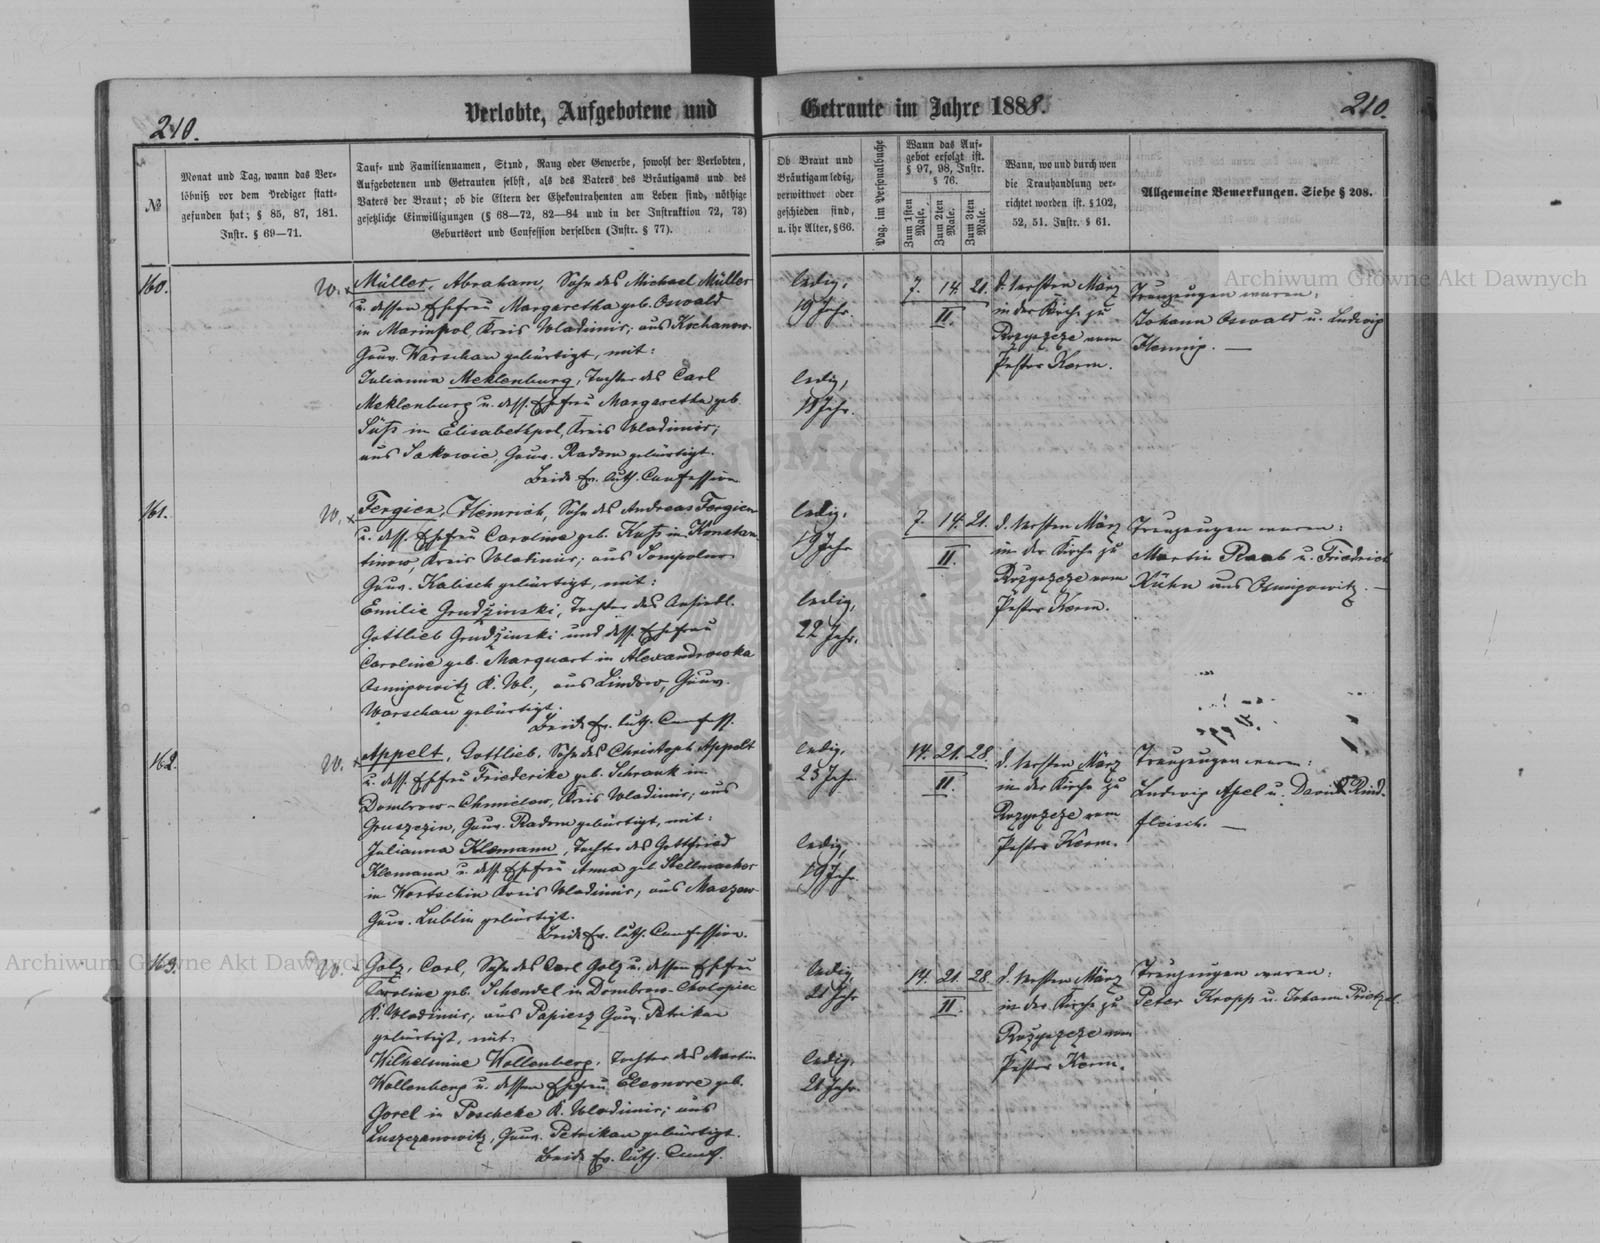 210.
Verlobte, Aufgebotene und
Getraute im Jahre 1888.
210.
№
Monat und Tag, wann das Ver-
löbniß vor dem Prediger statt-
gefunden hat; § 85, 87, 181.
Instr. § 69—71.
Tauf- und Familiennamen, Stand, Rang oder Gewerbe, sowohl der Verlobten,
Aufgebotenen und Getrauten selbst, als des Vaters des Bräutigams und des
Vaters der Braut; ob die Eltern der Ehekontrahenten am Leben sind, nöthige
gesetzliche Einwilligungen (§ 68—72, 82—84 und in der Instruktion 72, 73)
Geburtsort und Confession derselben (Instr. § 77).
Ob Braut und
Bräutigam ledig,
verwittwet oder
geschieden sind,
u. ihr Alter, § 66.
Pag. im Personalbuche
Wann das Auf-
gebot erfolgt ist.
§ 97, 98, Instr.
§ 76.
Zum 1sten Male.
Zum 2ten Male.
Zum 3ten Male.
Wann, wo und durch wen
die Trauhandlung ver-
richtet worden ist. § 102,
52, 51. Instr. § 61.
Allgemeine Bemerkungen. Siehe § 208.
160.
Müller, Abraham, Sohn des Michael Müller
u. dessen Ehefrau Margaretha geb. Oswald
in Marinpol, Kreis Wladimir, aus Kochanow
Gouv. Warschau gebürtigt, mit:
Julianna Meklenburg, Tochter des Carl
Meklenburg u. dess. Ehefrau Margaretha geb.
Süß in Elisabethpol, Kreis Wladimir;
aus Sakowic, Gouv. Radom gebürtigt.
Beide Ev. luth. Confession
ledig,
19 Jahr.
ledig,
18 Jahr.
7. 14. 21.
II.
d. ersten März
in der Kirche zu
Rozyszcze vom
Pastor Kerm.
Trauzeugen waren:
Johann Oswald u. Ludwig
Hennig. —
161.
Fergien, Heinrich, Sohn des Andreas Fergien
u. dess. Ehefrau Caroline geb. Kuß in Konstan-
tinow, Kreis Wladimir; aus Sompolno
Gouv. Kalisch gebürtigt, mit:
Emilie Grudzinski, Tochter des Ansiedl.
Gottlieb Grudzinski und dess. Ehefrau
Caroline geb. Marquart in Alexandrowka
Osmigowitz K. Wl., aus Lindow, Gouv.
Warschau gebürtigt.
Beide Ev. luth. Confess.
ledig,
19 Jahr
ledig,
22 Jahr.
7. 14. 21.
II.
d. ersten März
in der Kirche zu
Rozyszcze vom
Pastor Kerm.
Trauzeugen waren:
Martin Raab u. Friedrich
Kühn aus Osmigowitz. —
162.
Appelt, Gottlieb, Sohn des Christoph Appelt
u. dess. Ehefrau Friederike geb. Schrank in
Dombrow-Chmielow, Kreis Wladimir; aus
Gruszczin, Gouv. Radom gebürtigt, mit:
Julianna Klemann, Tochter des Gottfried
Klemann u. dess. Ehefrau Anna geb. Stellmacher
in Wortschin Kreis Wladimir, aus Maszew
Gouv. Lublin gebürtigt.
Beide Ev. luth. Confession.
ledig,
23 Jahr
ledig,
19 Jahr.
14. 21. 28.
II.
d. ersten März
in der Kirche zu
Rozyszcze vom
Pastor Kerm.
Trauzeugen waren:
Ludwig Apel u. David Rind-
fleisch. —
163.
Golz, Carl, Sohn des Carl Golz u. dessen Ehefrau
Caroline geb. Schendel in Dombrow-Cholopiec
K. Wladimir, aus Papiesz Gouv. Petrikau
gebürtigt, mit:
Wilhelmine Wollenberg, Tochter des Martin
Wollenberg u. dessen Ehefrau Eleonore geb.
Gorel in Poscheke K. Wladimir; aus
Luszczanowitz, Gouv. Petrikau gebürtigt.
Beide Ev. luth. Conf.
ledig
21 Jahr
ledig,
21 Jahr.
14. 21. 28.
II.
d. ersten März
in der Kirche zu
Rozyszcze vom
Pastor Kerm.
Trauzeugen waren:
Peter Kropp u. Johann Prietzel.
Archiwum Główne Akt Dawnych
Archiwum Główne Akt Dawnych